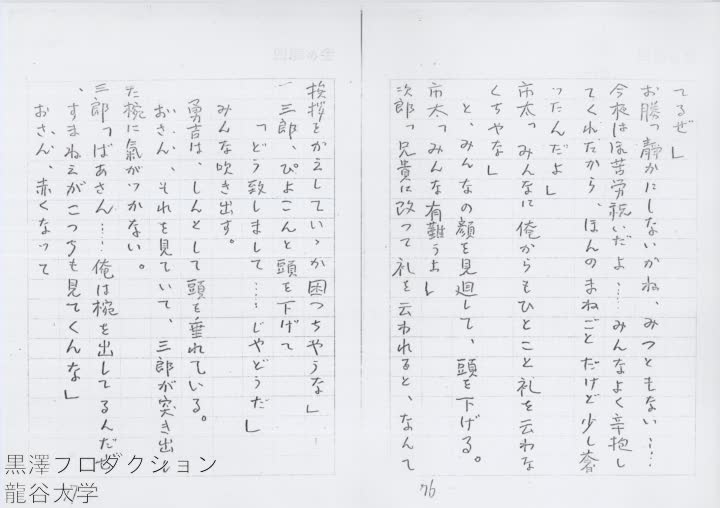 てるぜ」
お勝っ靜かにしないかね、みつともない……
今夜は厄苦労祝いだよ……みんなよく辛抱し
てくれだから、ほんのまねごとだけど少し奢
ったんだよ」
市太っみんなに俺からもひとこと礼を云わな
くちやな」
と、みんなの顔を見廻して、頭を下げる。
市太っみんな有難うよ」
次郎っ兄貴に改つて礼を云われると、なんて
76
挨拶をかえしていゝか困つちやうな」
三郎、ぴよこんと頭を下げて
「どう致しまして……じやどうだ」
みんな吹き出す。
勇吉は、しんとして頭を垂れている。
おさん、それを見ていて、三郎が突き出し
た椀に氣がつかない。
三郎っばあさん……俺は椀を出してるんだぜ
、すまねえがこつちも見てくんな」
おさん、赤くなって
黒澤プロダクション
龍谷大学